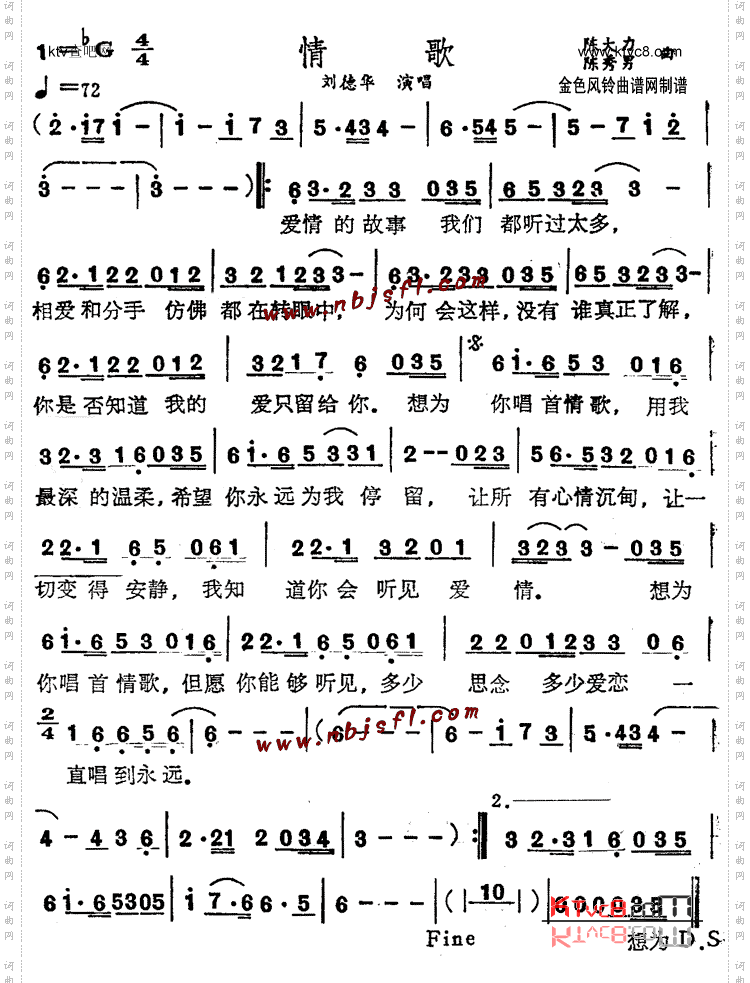 1=♭G 4/4 情 歌 陈大力 陈秀男 曲
ktv查吧网 www.ktvc8.com
♩=72 刘德华 演唱 金色风铃曲谱网制谱
(2·i7i-|i-i73|5·434-|6·545-|5-7i2|
3---|3---)‖: 63·233 035|65323 3-|
爱情的故事 我们 都听过太多,
62·122012|321233-|63·233035|653233-|
相爱和分手 仿佛 都在转眼中, 为何会这样,没有谁真正了解,
www.nbjsfl.com
62·122012|3217 6 035|6i·653 016|
你是否知道 我的 爱只留给你. 想为 你唱首情歌, 用我
32·316035|6i·65331|2--023|56·532016|
最深的温柔,希望你永远为我停留, 让所有心情沉甸,让一
22·1 65 061|22·1 3201|3233-035|
切变得 安静, 我知 道你会听见 爱 情. 想为
6i·653016|22·165061|2201233 06|
你唱首情歌,但愿你能够听见,多少 思念 多少爱恋 一
2/4 16656|6---|(6---|6-i73|5·434-|
www.nbjsfl.com
直唱到永远.
2.
4-436|2·21 2034|3---):‖32·316035|
6i·65305|i7·66·5|6---|(|10|600033‖
KTvc8.com
Fine 想为D.S
词曲网